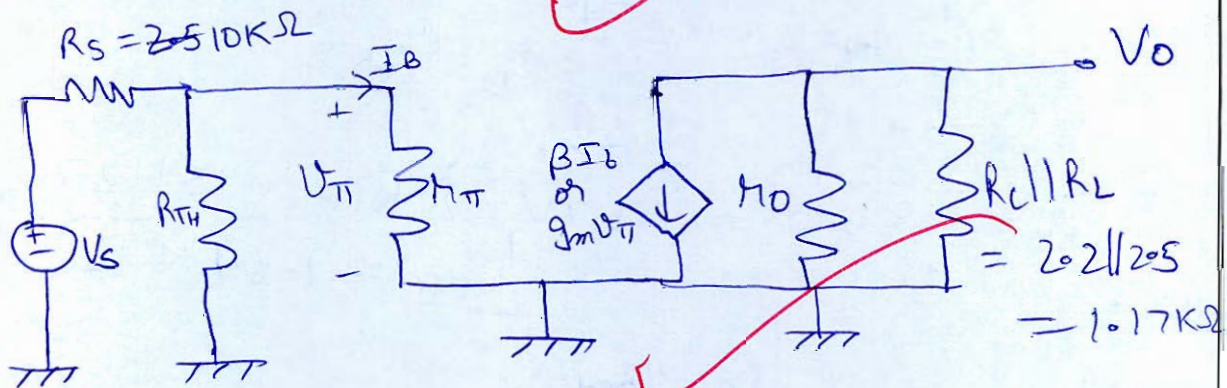 RS = 10KΩ
IB
VO
+
VS
RTH
Vπ
rπ
-
βIb
or
gmVπ
ro
RC||RL
= 2.2||2.5
= 1.17KΩ